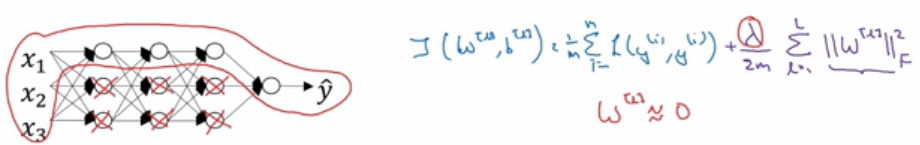 x₁
x₂
x₃
ŷ
J(w^[l], b^[l]) = 1/m Σ_{i=1}^m L(y^(i), y^(i)) + λ/2m Σ_{l=1}^L ||w^[l]||²_F
w^[l] ≈ 0